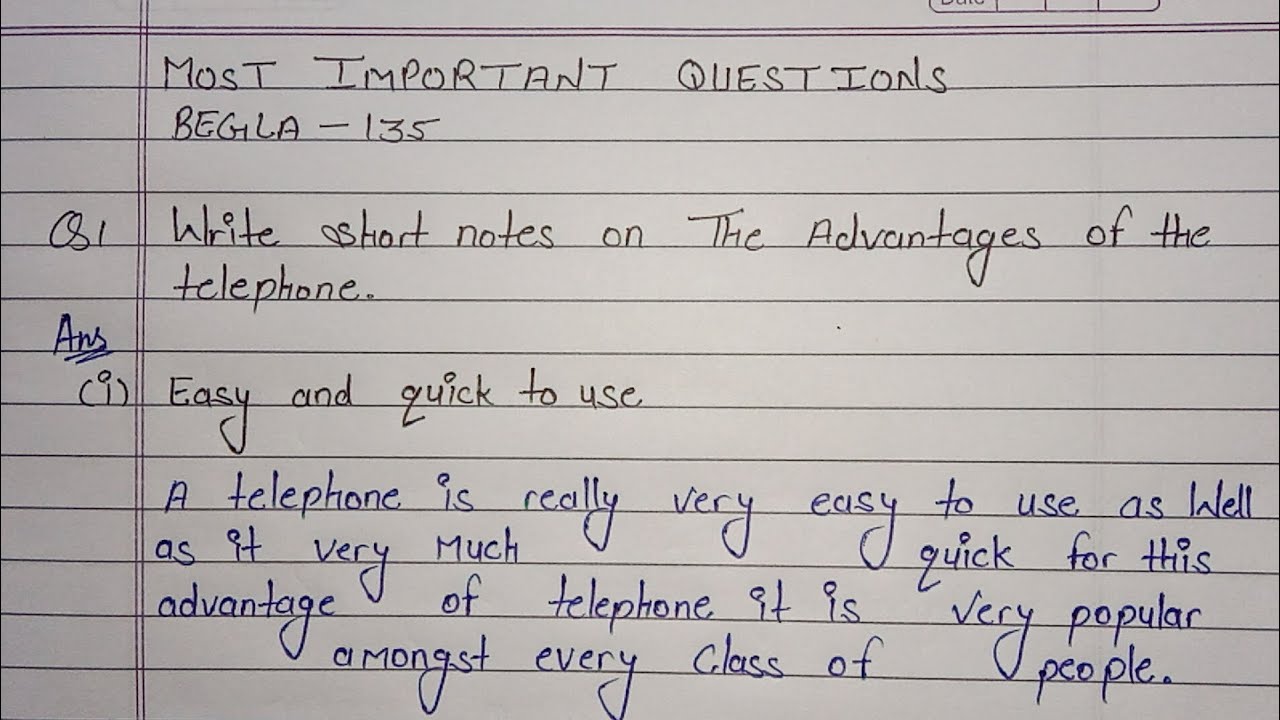 Date
MOST IMPORTANT QUESTIONS
BEGLA - 135
Q1 Write short notes on The Advantages of the
telephone.
Ans
(i) Easy and quick to use
A telephone is really very easy to use as Well
as it very Much quick for this
advantage of telephone it is very popular
amongst every Class of people.